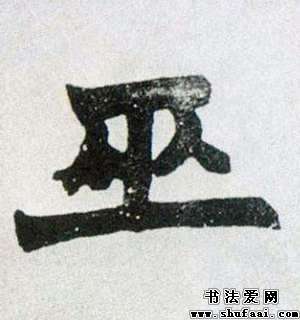 巫
书法爱网
www.shufaai.com